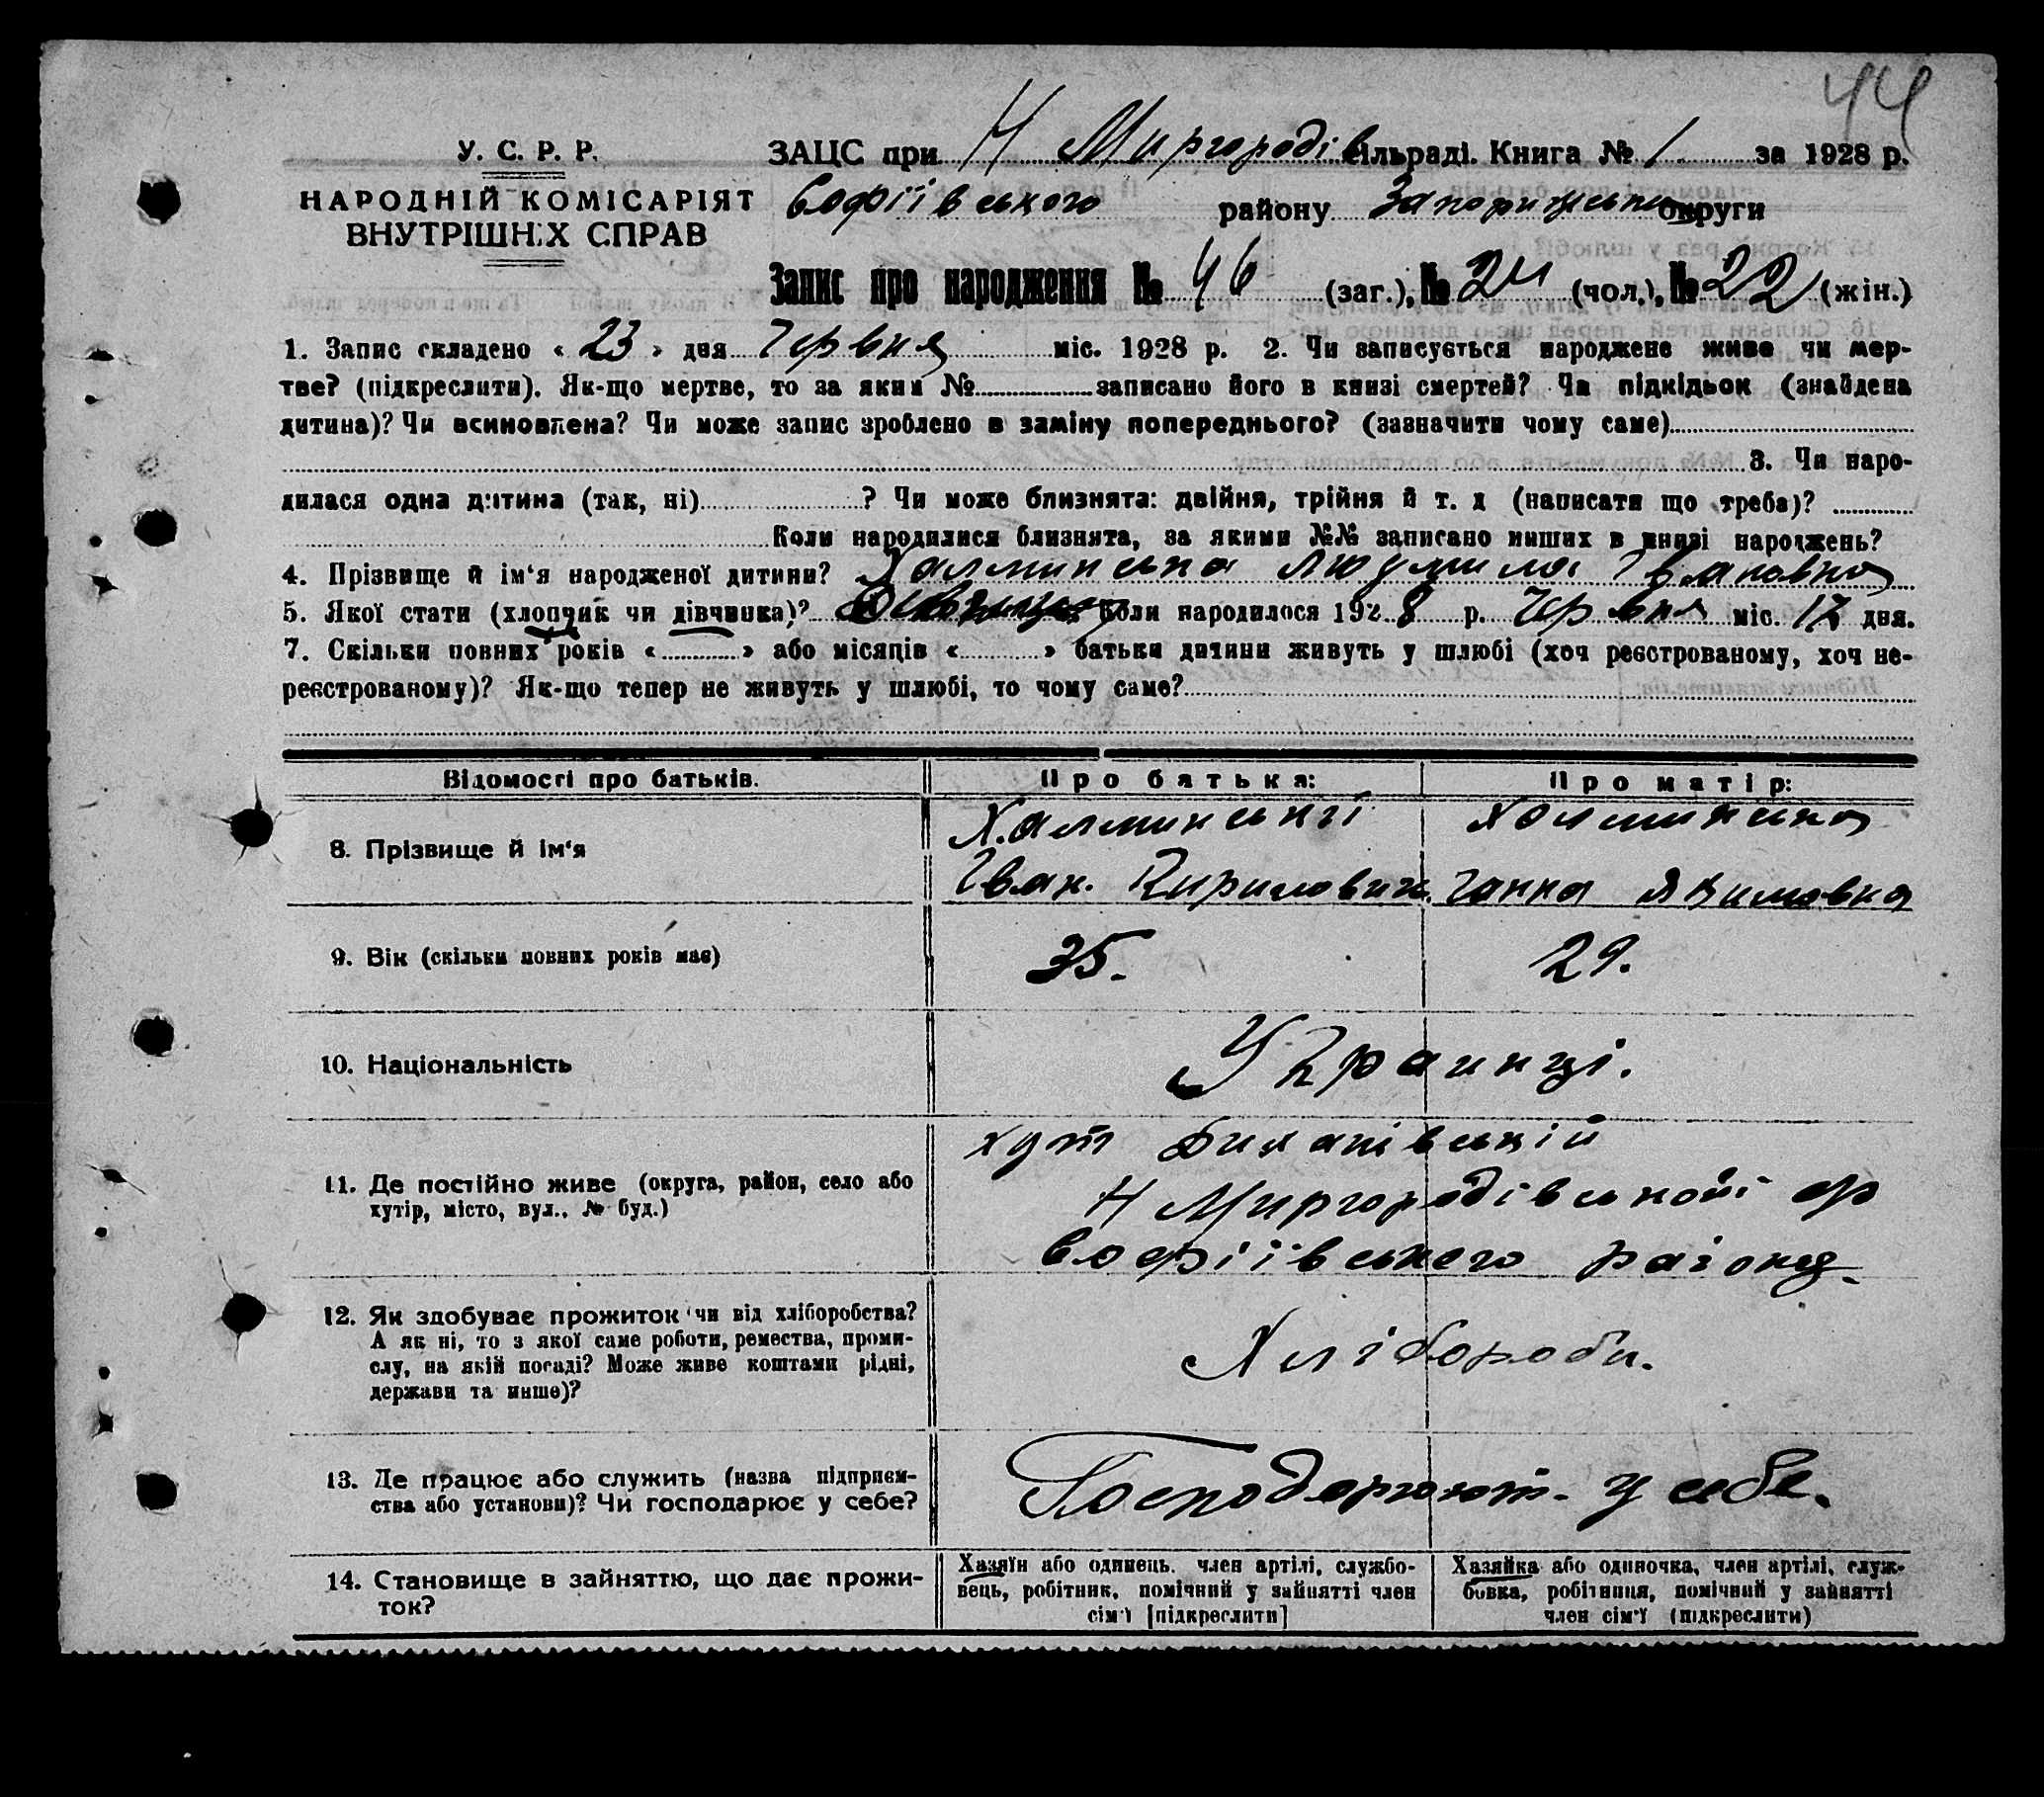 44
У. С. Р. Р.
НАРОДНІЙ КОМІСАРІЯТ
ВНУТРІШНІХ СПРАВ
ЗАЦС при Н Миргородів сільраді. Книга № 1 за 1928 р.
Софіївського району Запорізької округи
Запис про народження № 46 (заг.), № 24 (чол.), № 22 (жін.)
1. Запис складено « 23 » дня Червня міс. 1928 р. 2. Чи записується народжене живе чи мер-
тве? (підкреслити). Як-що мертве, то за яким № записано його в книзі смертей? Чи підкідьок (знайдена
дитина)? Чи всиновлена? Чи може запис зроблено в заміну попереднього? (зазначити чому саме)
3. Чи наро-
дилася одна дитина (так, ні) ? Чи може близнята: двійня, трійня й т. д (написати що треба)?
Коли народилися близнята, за якими №№ записано инших в книзі народжень?
4. Прізвище й ім‘я народженої дитини? Халминська Людмила Івановна
5. Якої стати (хлопчик чи дівчинка)? Коли народилося 1928 р. Червня міс. 12 дня.
7. Скільки повних років « » або місяців « » батьки дитини живуть у шлюбі (хоч реєстрованому, хоч не-
реєстрованому)? Як-що тепер не живуть у шлюбі, то чому саме?
Відомості про батьків. Про батька: Про матір:
8. Прізвище й ім‘я Халминські Халминська
Іван. Кирилович. Ганна Якимовна
9. Вік (скільки повних років має) 35. 29.
10. Національність Украинці.
11. Де постійно живе (округа, район, село або
хутір, місто, вул., № буд.)
хут
Н Миргородівської ср
Софіївського району
12. Як здобуває прожиток чи від хліборобства?
А як ні, то з якої саме роботи, ремества, проми-
слу, на якій посаді? Може живе коштами рідні,
держави та инше)?
Хлібороби.
13. Де працює або служить (назва підприєм-
ства або установи)? Чи господарює у себе?
Господарюют. у себе.
14. Становище в зайняттю, що дає прожи-
ток?
Хазяїн або одинець. член артілі, службо-
вець, робітник, помічний у зайнятті член
сім'ї [підкреслити]
Хазяйка або одиночка, член артілі, служ-
бовка, робітниця, помічний у зайнятті
член сім'ї (підкреслити)